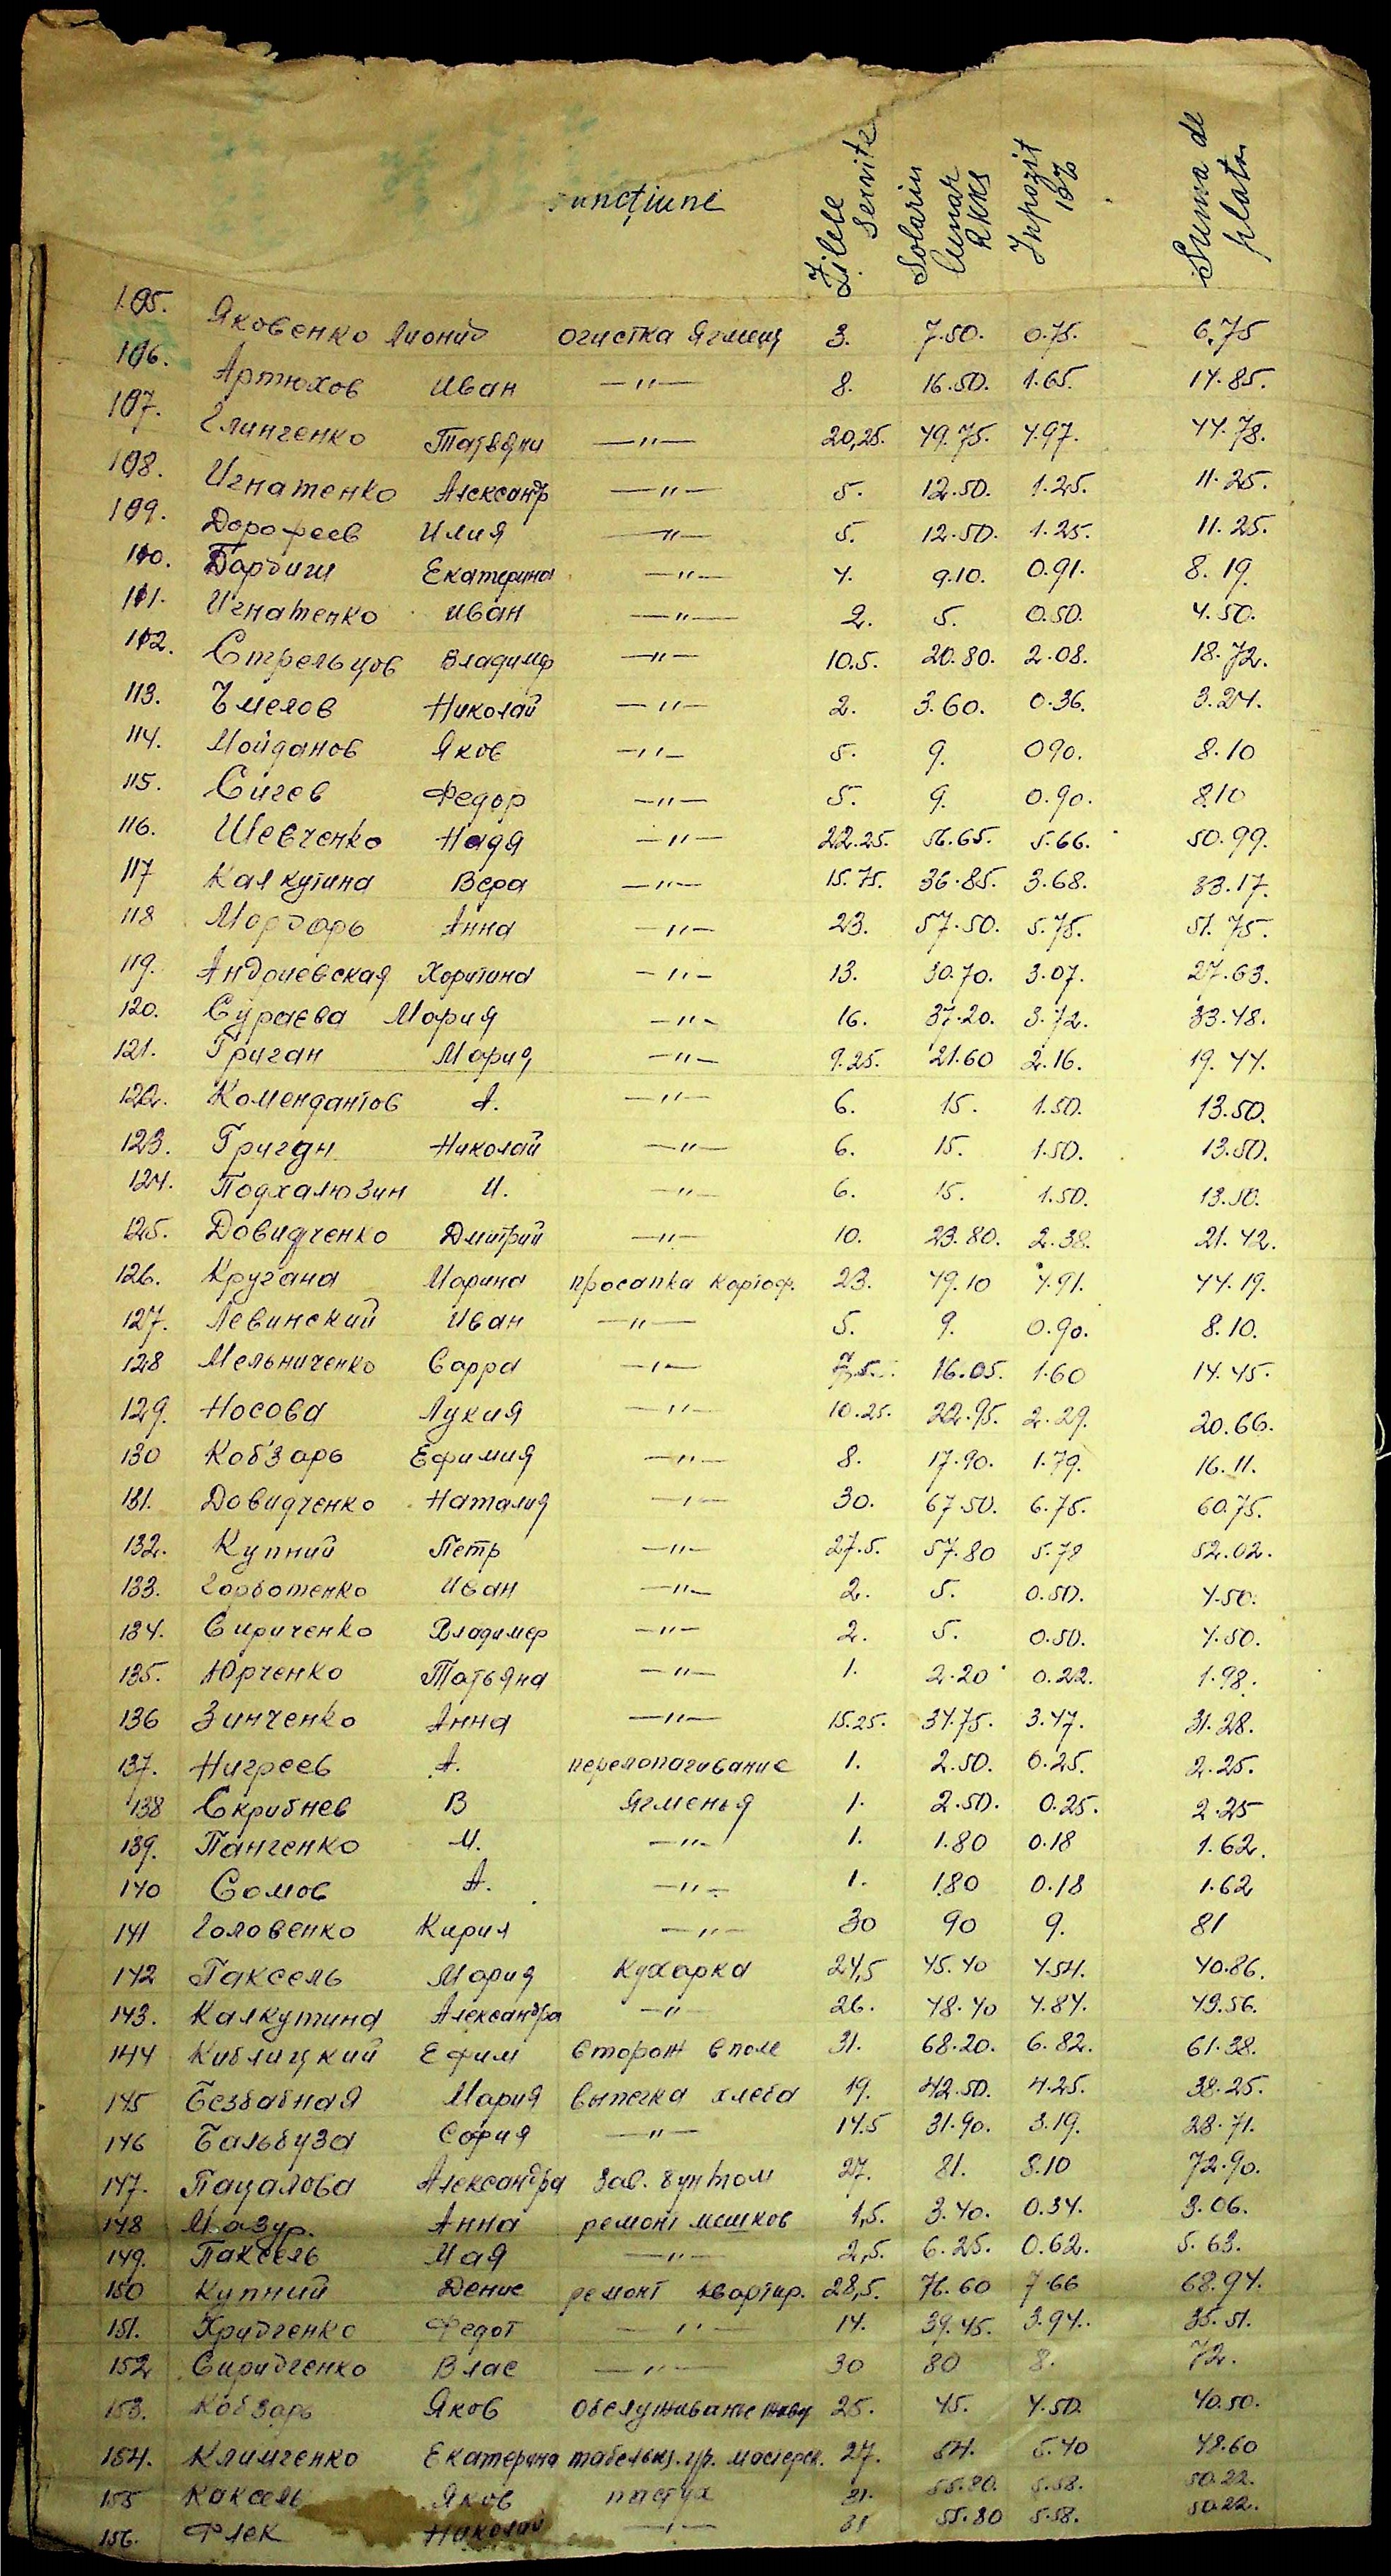 uncțiune Zilele servite Solariu lunar RKKS Inpozit 10% Suma de plată
105. Яковенко Лионид очистка Ячменя 3. 7.50. 0.75. 6.75
106. Артюхов Иван —"— 8. 16.50. 1.65. 14.85.
107. Глинченко Татьяна —"— 20,25. 49.75. 4.97. 44.78.
108. Игнатенко Александр —"— 5. 12.50. 1.25. 11.25.
109. Дорофеев Илия —"— 5. 12.50. 1.25. 11.25.
110. Екатерина —"— 4. 9.10. 0.91. 8.19.
111. Игнатенко Иван —"— 2. 5. 0.50. 4.50.
112. Стрельцов Владимир —"— 10.5. 20.80. 2.08. 18.72.
113. Чмелов Николай —"— 2. 3.60. 0.36. 3.24.
114. Мойданов Яков —"— 5. 9. 090. 8.10
115. Сичев Федор —"— 5. 9. 0.90. 8.10
116. Шевченко Надя —"— 22.25. 56.65. 5.66. 50.99.
117 Калкутина Вера —"— 15.75. 36.85. 3.68. 33.17.
118 Мордарь Анна —"— 23. 57.50. 5.75. 51.75.
119. Андриевская Харитина —"— 13. 30.70. 3.07. 27.63.
120. Сураева Мария —"— 16. 37.20. 3.72. 33.48.
121. Григан Мария —"— 9.25. 21.60 2.16. 19.44.
122. Комендантов А. —"— 6. 15. 1.50. 13.50.
123. Григан Николай —"— 6. 15. 1.50. 13.50.
124. Подхалюзин И. —"— 6. 15. 1.50. 13.50.
125. Довидченко Дмитрий —"— 10. 23.80. 2.38. 21.42.
126. Кругана Марина просапка картоф. 23. 49.10 4.91. 44.19.
127. Левинский Иван —"— 5. 9. 0.90. 8.10.
128 Мельниченко Сарра —"— 7.5. 16.05. 1.60 14.45.
129. Носова Лукия —"— 10.25. 22.95. 2.29. 20.66.
130 Кобзарь Ефимия —"— 8. 17.90. 1.79. 16.11.
131. Довидченко Наталия —"— 30. 67.50. 6.75. 60.75.
132. Купний Петр —"— 27.5. 57.80 5.78 52.02.
133. Горботенко Иван —"— 2. 5. 0.50. 4.50.
134. Сириченко Владимер —"— 2. 5. 0.50. 4.50.
135. Юрченко Татьяна —"— 1. 2.20 0.22. 1.98.
136 Зинченко Анна —"— 15.25. 34.75. 3.47. 31.28.
137. Нигреев А. перелопачивание 1. 2.50. 0.25. 2.25.
138 Скрибнев В Ячменья 1. 2.50. 0.25. 2.25
139. Панченко И. —"— 1. 1.80 0.18 1.62.
140 Сомов А. —"— 1. 1.80 0.18 1.62
141 Головенко Кирил —"— 30 90 9. 81
142 Гаксель Мария Кухарка 24,5 45.40 4.54. 40.86.
143. Калкутина Александра —"— 26. 48.40 4.84. 43.56.
144 Киблицкий Ефим сторож в поле 31. 68.20. 6.82. 61.38.
145 Безбабная Мария выпечка хлеба 19. 42.50. 4.25. 38.25.
146 Бальбуза София —"— 14.5 31.90. 3.19. 28.71.
147. Пацалова Александра зав. 27. 81. 8.10 72.90.
148 Мазур. Анна ремонт мешков 1,5. 3.40. 0.34. 3.06.
149. Паксель Мая —"— 2,5. 6.25. 0.62. 5.63.
150 Купний Денис ремонт квартир. 28,5. 76.60 7.66 68.94.
151. Хридченко Федот —"— 14. 39.45. 3.94. 35.51.
152 Сиридченко Влас —"— 30 80 8. 72.
153. Кобзарь Яков обслуживанье 25. 45. 4.50. 40.50.
154. Климченко Екатерина мастерск. 27. 54. 5.40 48.60
155 Каксель Яков пастух 31. 55.80. 5.58. 50.22.
156. Флек Николай —"— 31 55.80 5.58. 50.22.